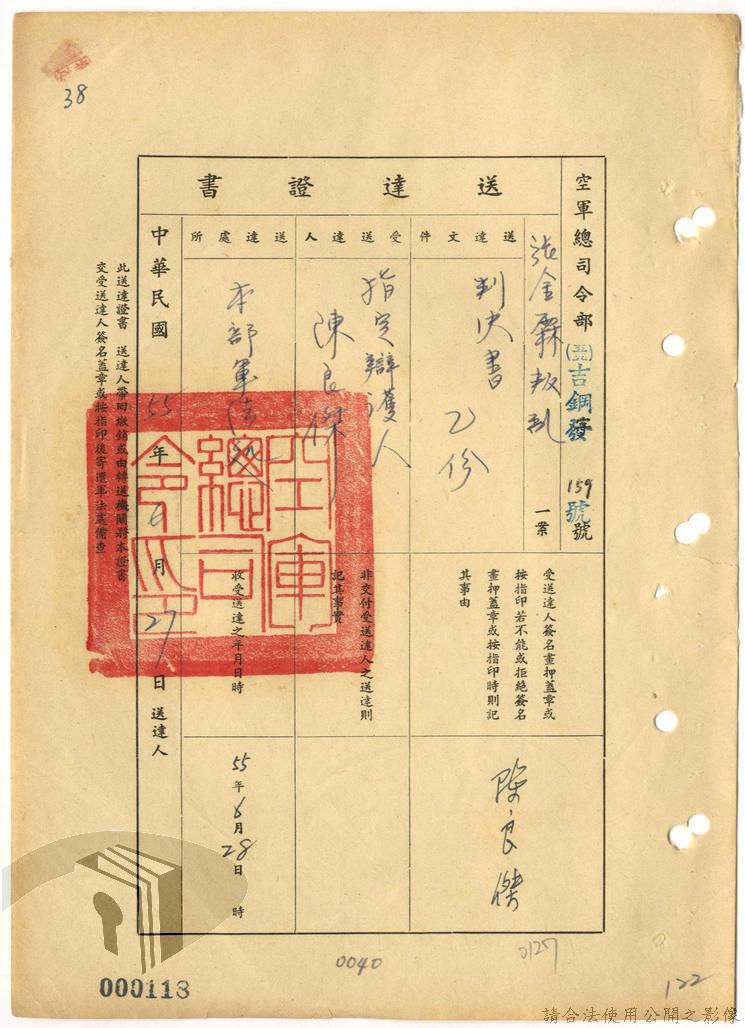 38
送達證書
空軍總司令部
(五五)吉鋼發 159 號號
張金霖叛亂
一案
送達文件
判決書 乙份
受送達人
指定辯護人
陳良傑
送達處所
本部軍法處
受送達人簽名畫押蓋章或
按指印若不能或拒絕簽名
畫押蓋章或按指印時則記
其事由
陳良傑
非交付受送達人之送達則
記其事實
收受送達之年月日時
55年6月28日 時
中華民國 55年6月27日 送達人
此送達證書 送達人帶回繳銷或由轉送機關將本證書
交受送達人簽名蓋章或按指印後寄還軍法處備查
空軍總司令印
0040
0127
122
000118
請合法使用公開之影像